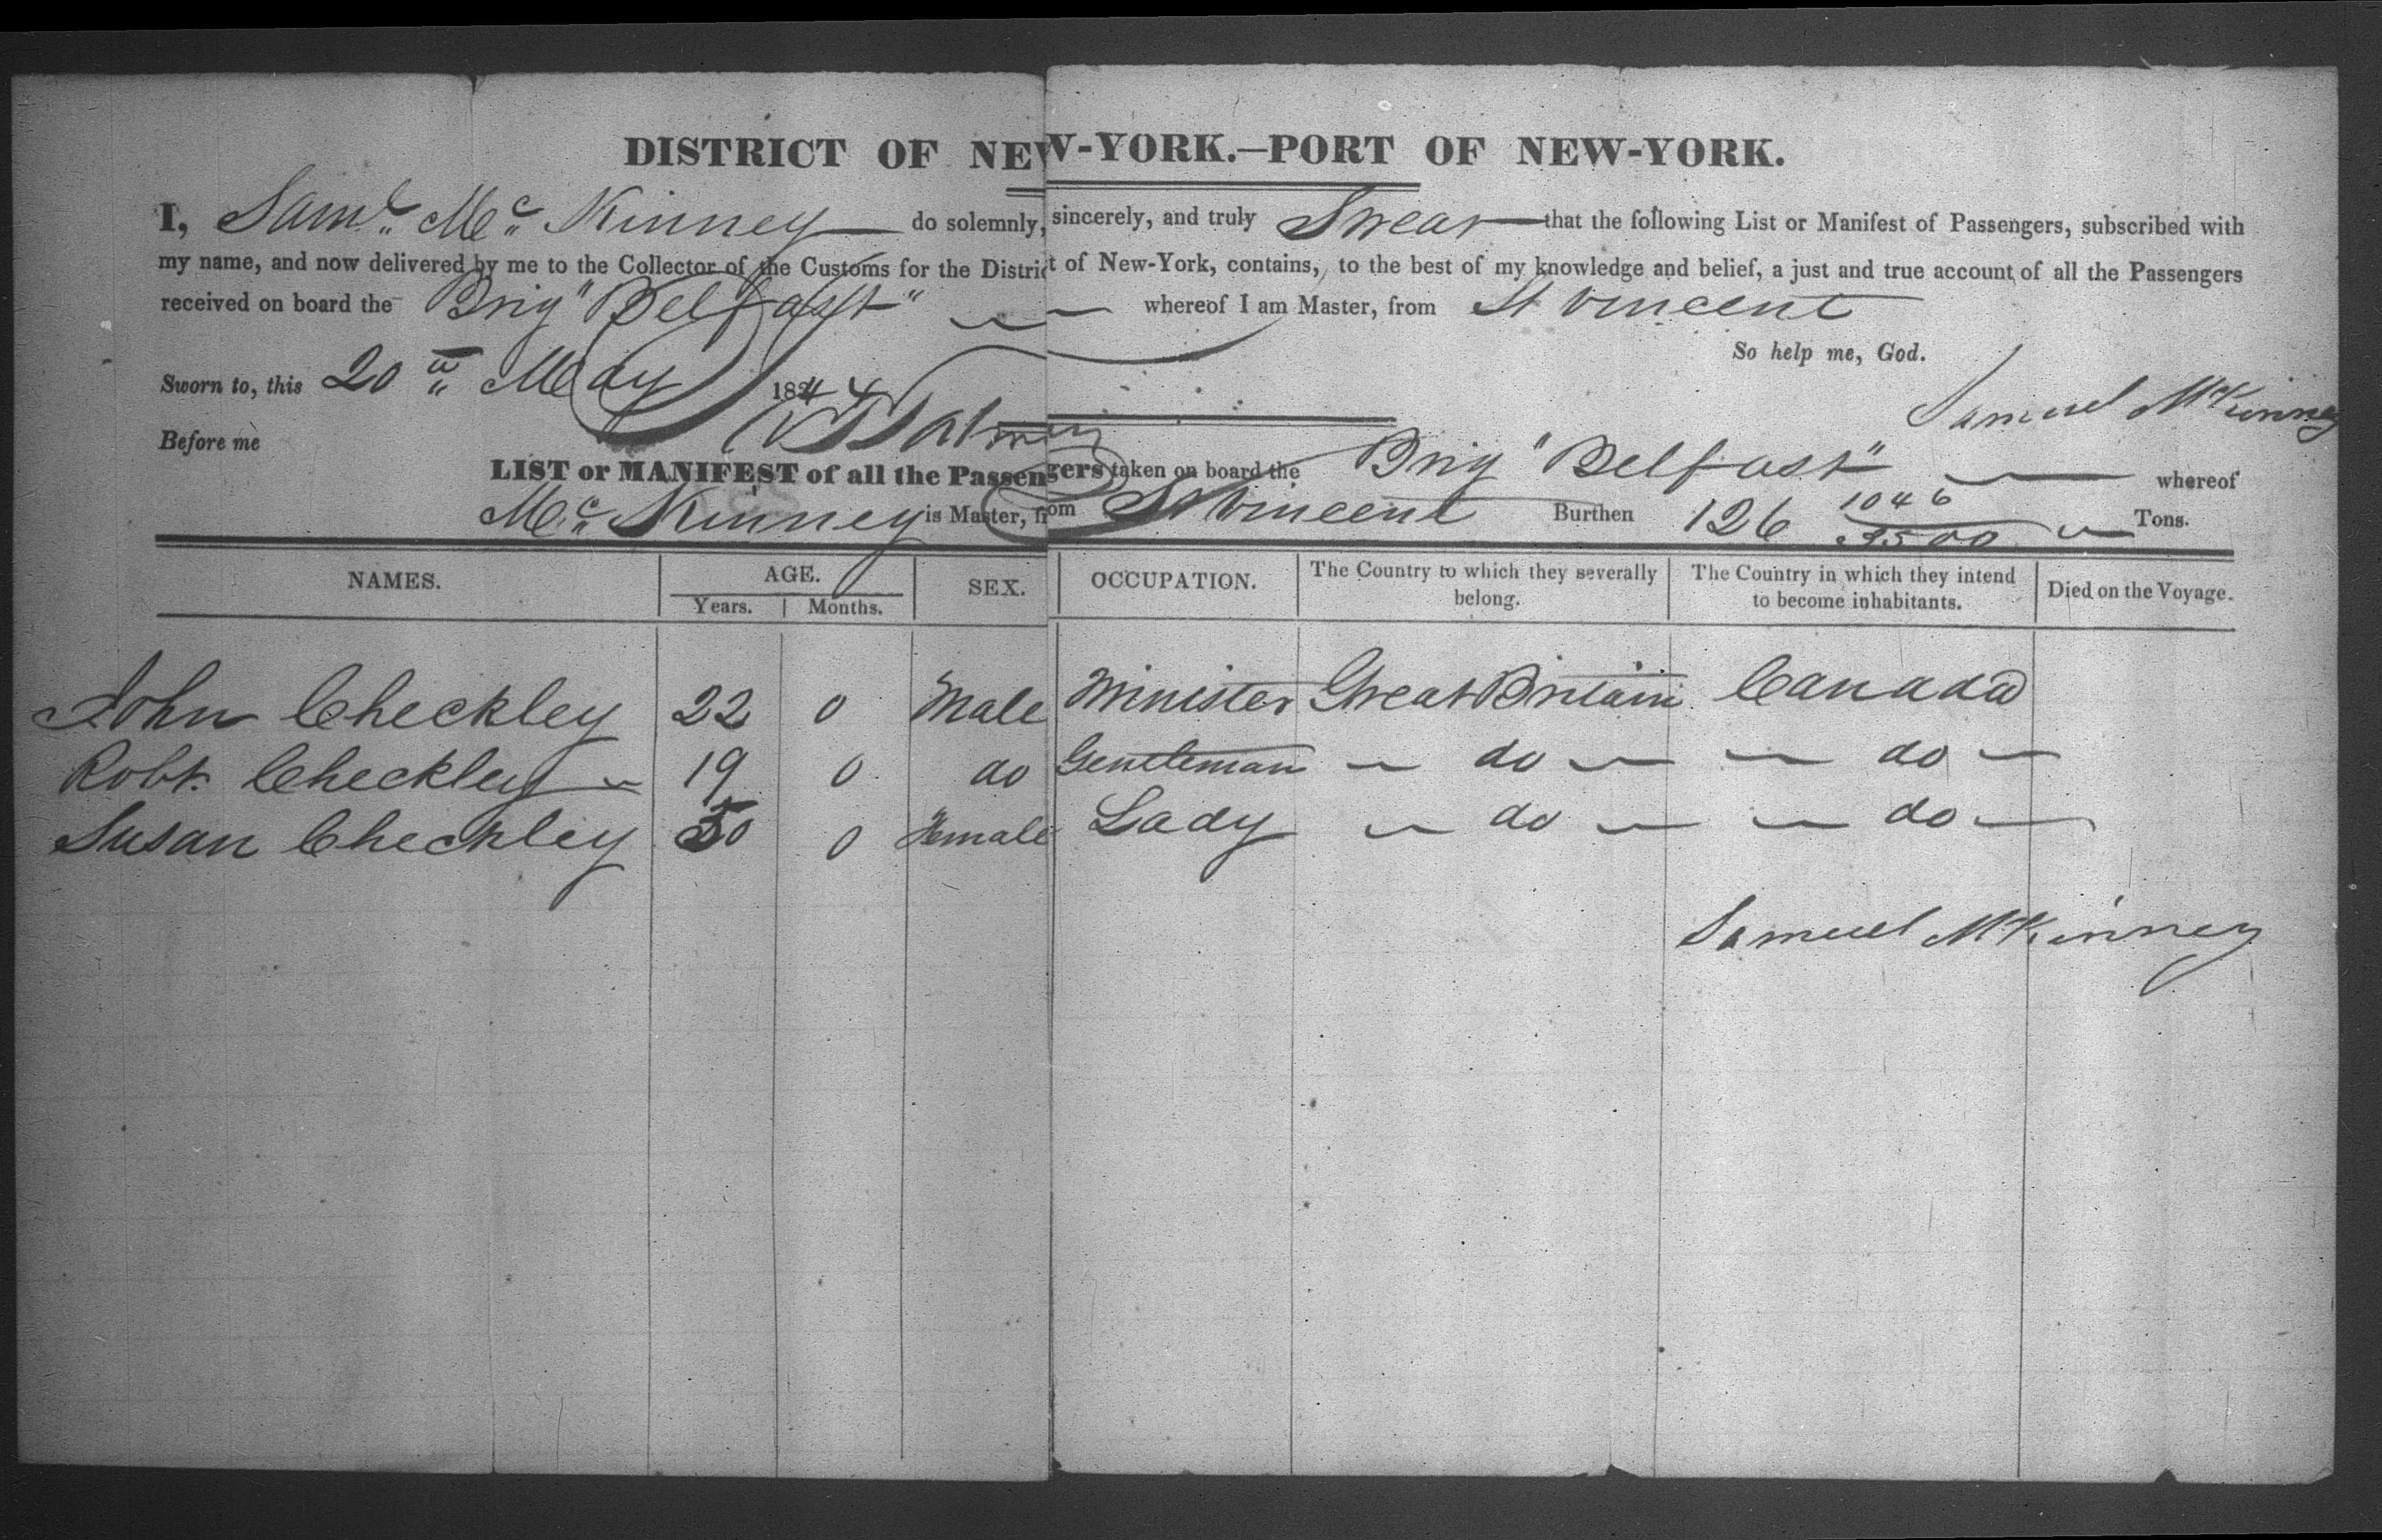 DISTRICT OF NEW-YORK.—PORT OF NEW-YORK.
I, Saml. Mc. Kinney do solemnly, sincerely, and truly Swear that the following List or Manifest of Passengers, subscribed with
my name, and now delivered by me to the Collector of the Customs for the District of New-York, contains, to the best of my knowledge and belief, a just and true account of all the Passengers
received on board the Brig "Belfast" whereof I am Master, from St Vincent
So help me, God.
Sworn to, this 20th May 1844 Samuel McKinney
Before me
LIST or MANIFEST of all the Passengers taken on board the Brig "Belfast" whereof
Mc. Kinney is Master, from St Vincent Burthen 126 1046/3500 Tons.
NAMES. AGE. SEX. OCCUPATION. The Country to which they severally belong. The Country in which they intend to become inhabitants. Died on the Voyage.
Years. Months.
John Checkley 22 0 Male Minister Great Britain Canada
Robt. Checkley 19 0 do Gentleman do do
Susan Checkley 50 0 Female Lady do do
Samuel McKinney